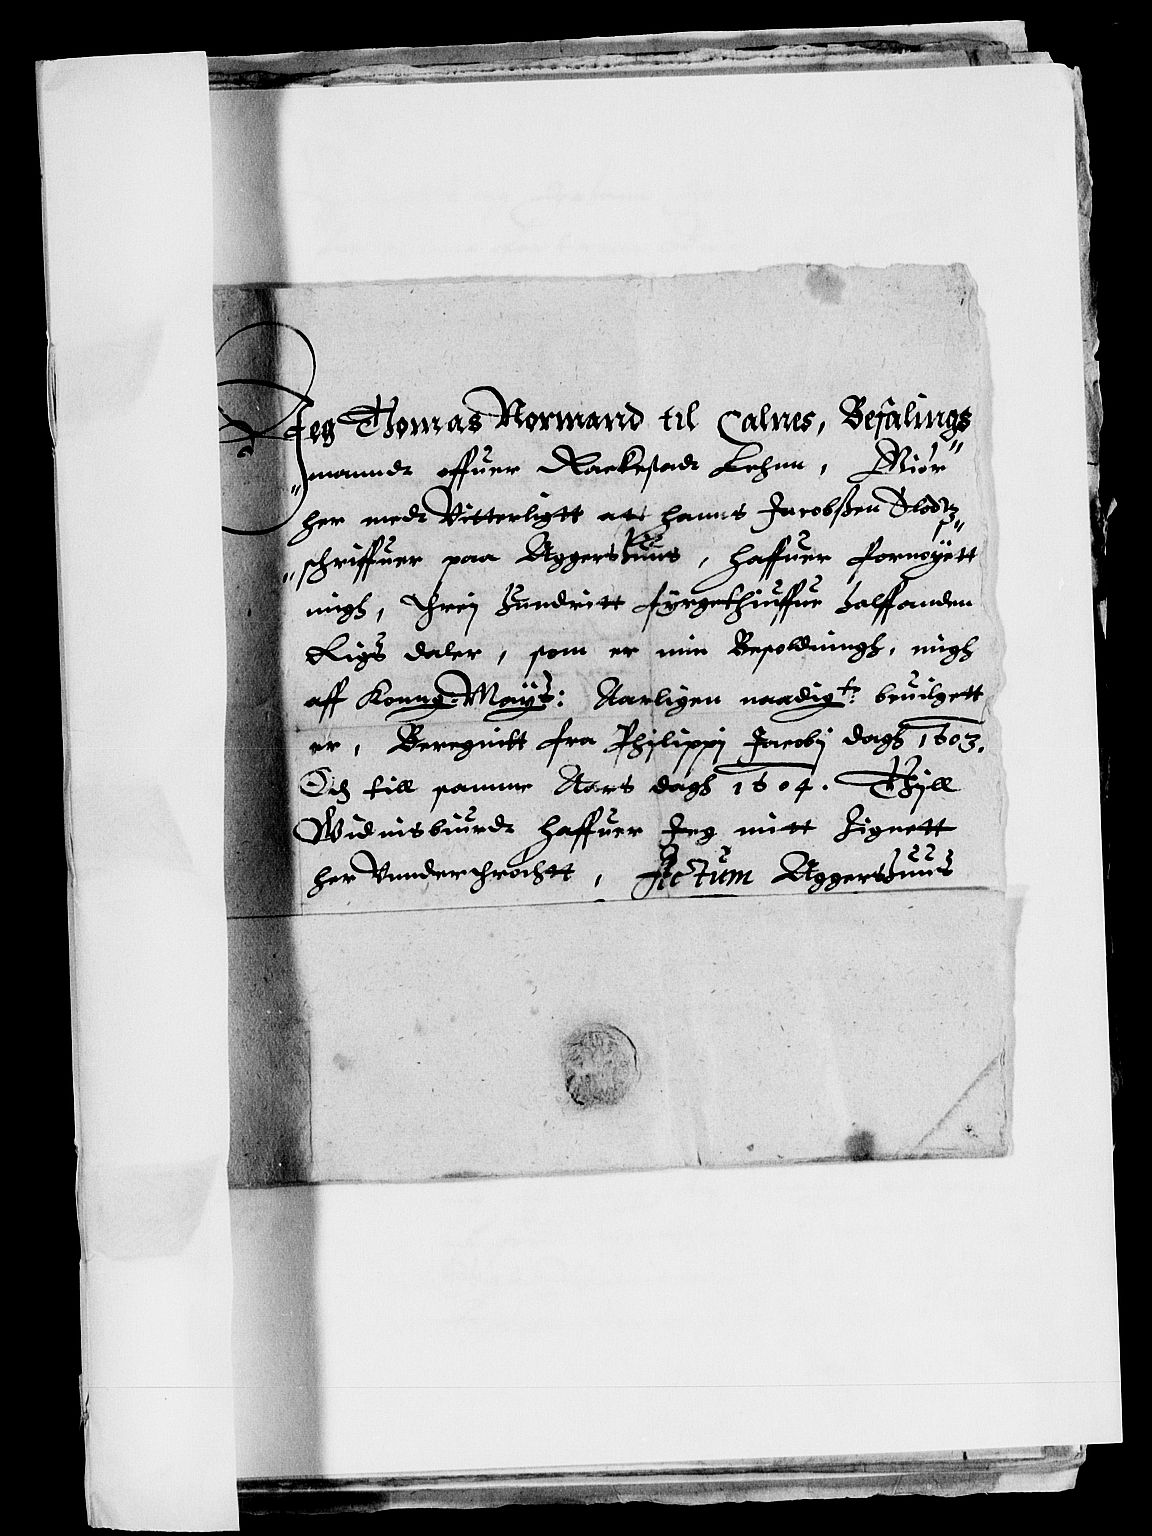 Jeg Thomas Normand til Calnes, Befalings„
„mannde offuer Rackestade Lehnn, Giör
her mede Vitterligtt att hanns Jacobßen Slodtz„
„schriffuer paa Aggershuus, haffuer fornöyett
migh, Threj hundritt fyrgethiuffue halffanden
Rigs daler, som er min Besoldningh, migh
aff Konng: Mayᵗˢ: Aarligen naadigᵗ: beuilgett
er, Beregnitt fra Philippj Jacobj dagh 1603.
Och till samme Aars dagh 1604. Thyll
Widnisbiurde haffuer Jeg mitt Zignett
her Vnnderthröchtt, Actum Aggershuus